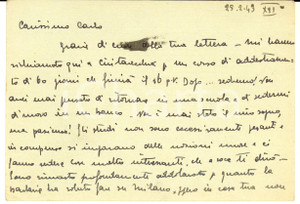 28.2.43 XXI°
Carissimo Carlo
Grazie di cuore della tua lettera - Mi hanno
richiamato qui a Civitavecchia per un corso di addestramento
di 60 giorni che finirà il 26 p.v. Dopo - vedremo. Non
avrei mai pensato di ritornare in una scuola e di sedermi
di nuovo in un banco. Non è mai stato il mio sogno,
ma pazienza! Gli studi non sono eccessivamente pesanti e
in compenso si imparano delle nozioni nuove e ci
fanno vedere cose molto interessanti, che a voce ti dirò -
Sono rimasto profondamente addolorato per quanto la
barbarie ha voluto fare su Milano, spero in casa tua non